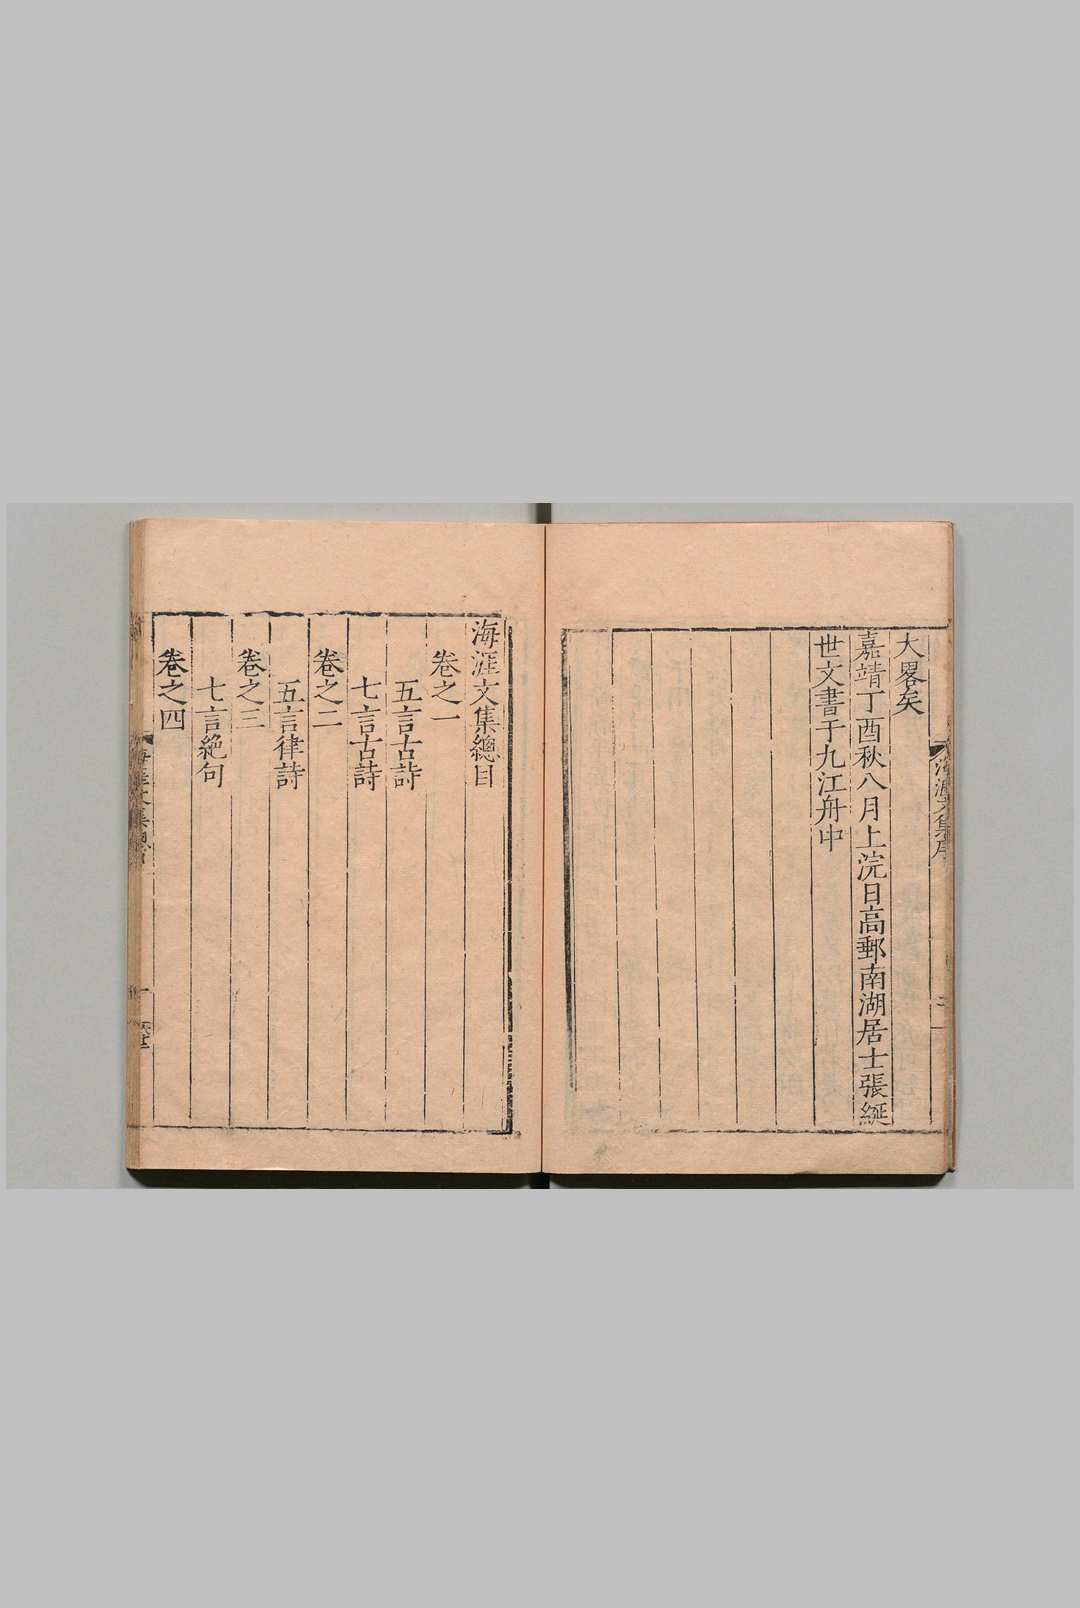 大畧矣
嘉靖丁酉秋八月上浣日高郵南湖居士張綖
世文書于九江舟中
海涯文集序
海涯文集總目
卷之一
五言古詩
七言古詩
卷之二
五言律詩
卷之三
七言絕句
卷之四